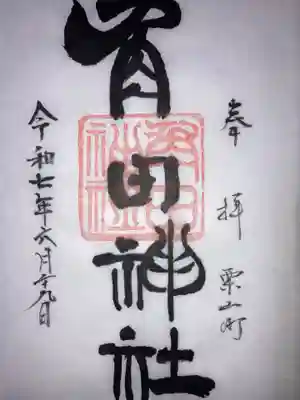 奉拝 栗山町
角田神社
角田
神社
令和七年六月二十九日